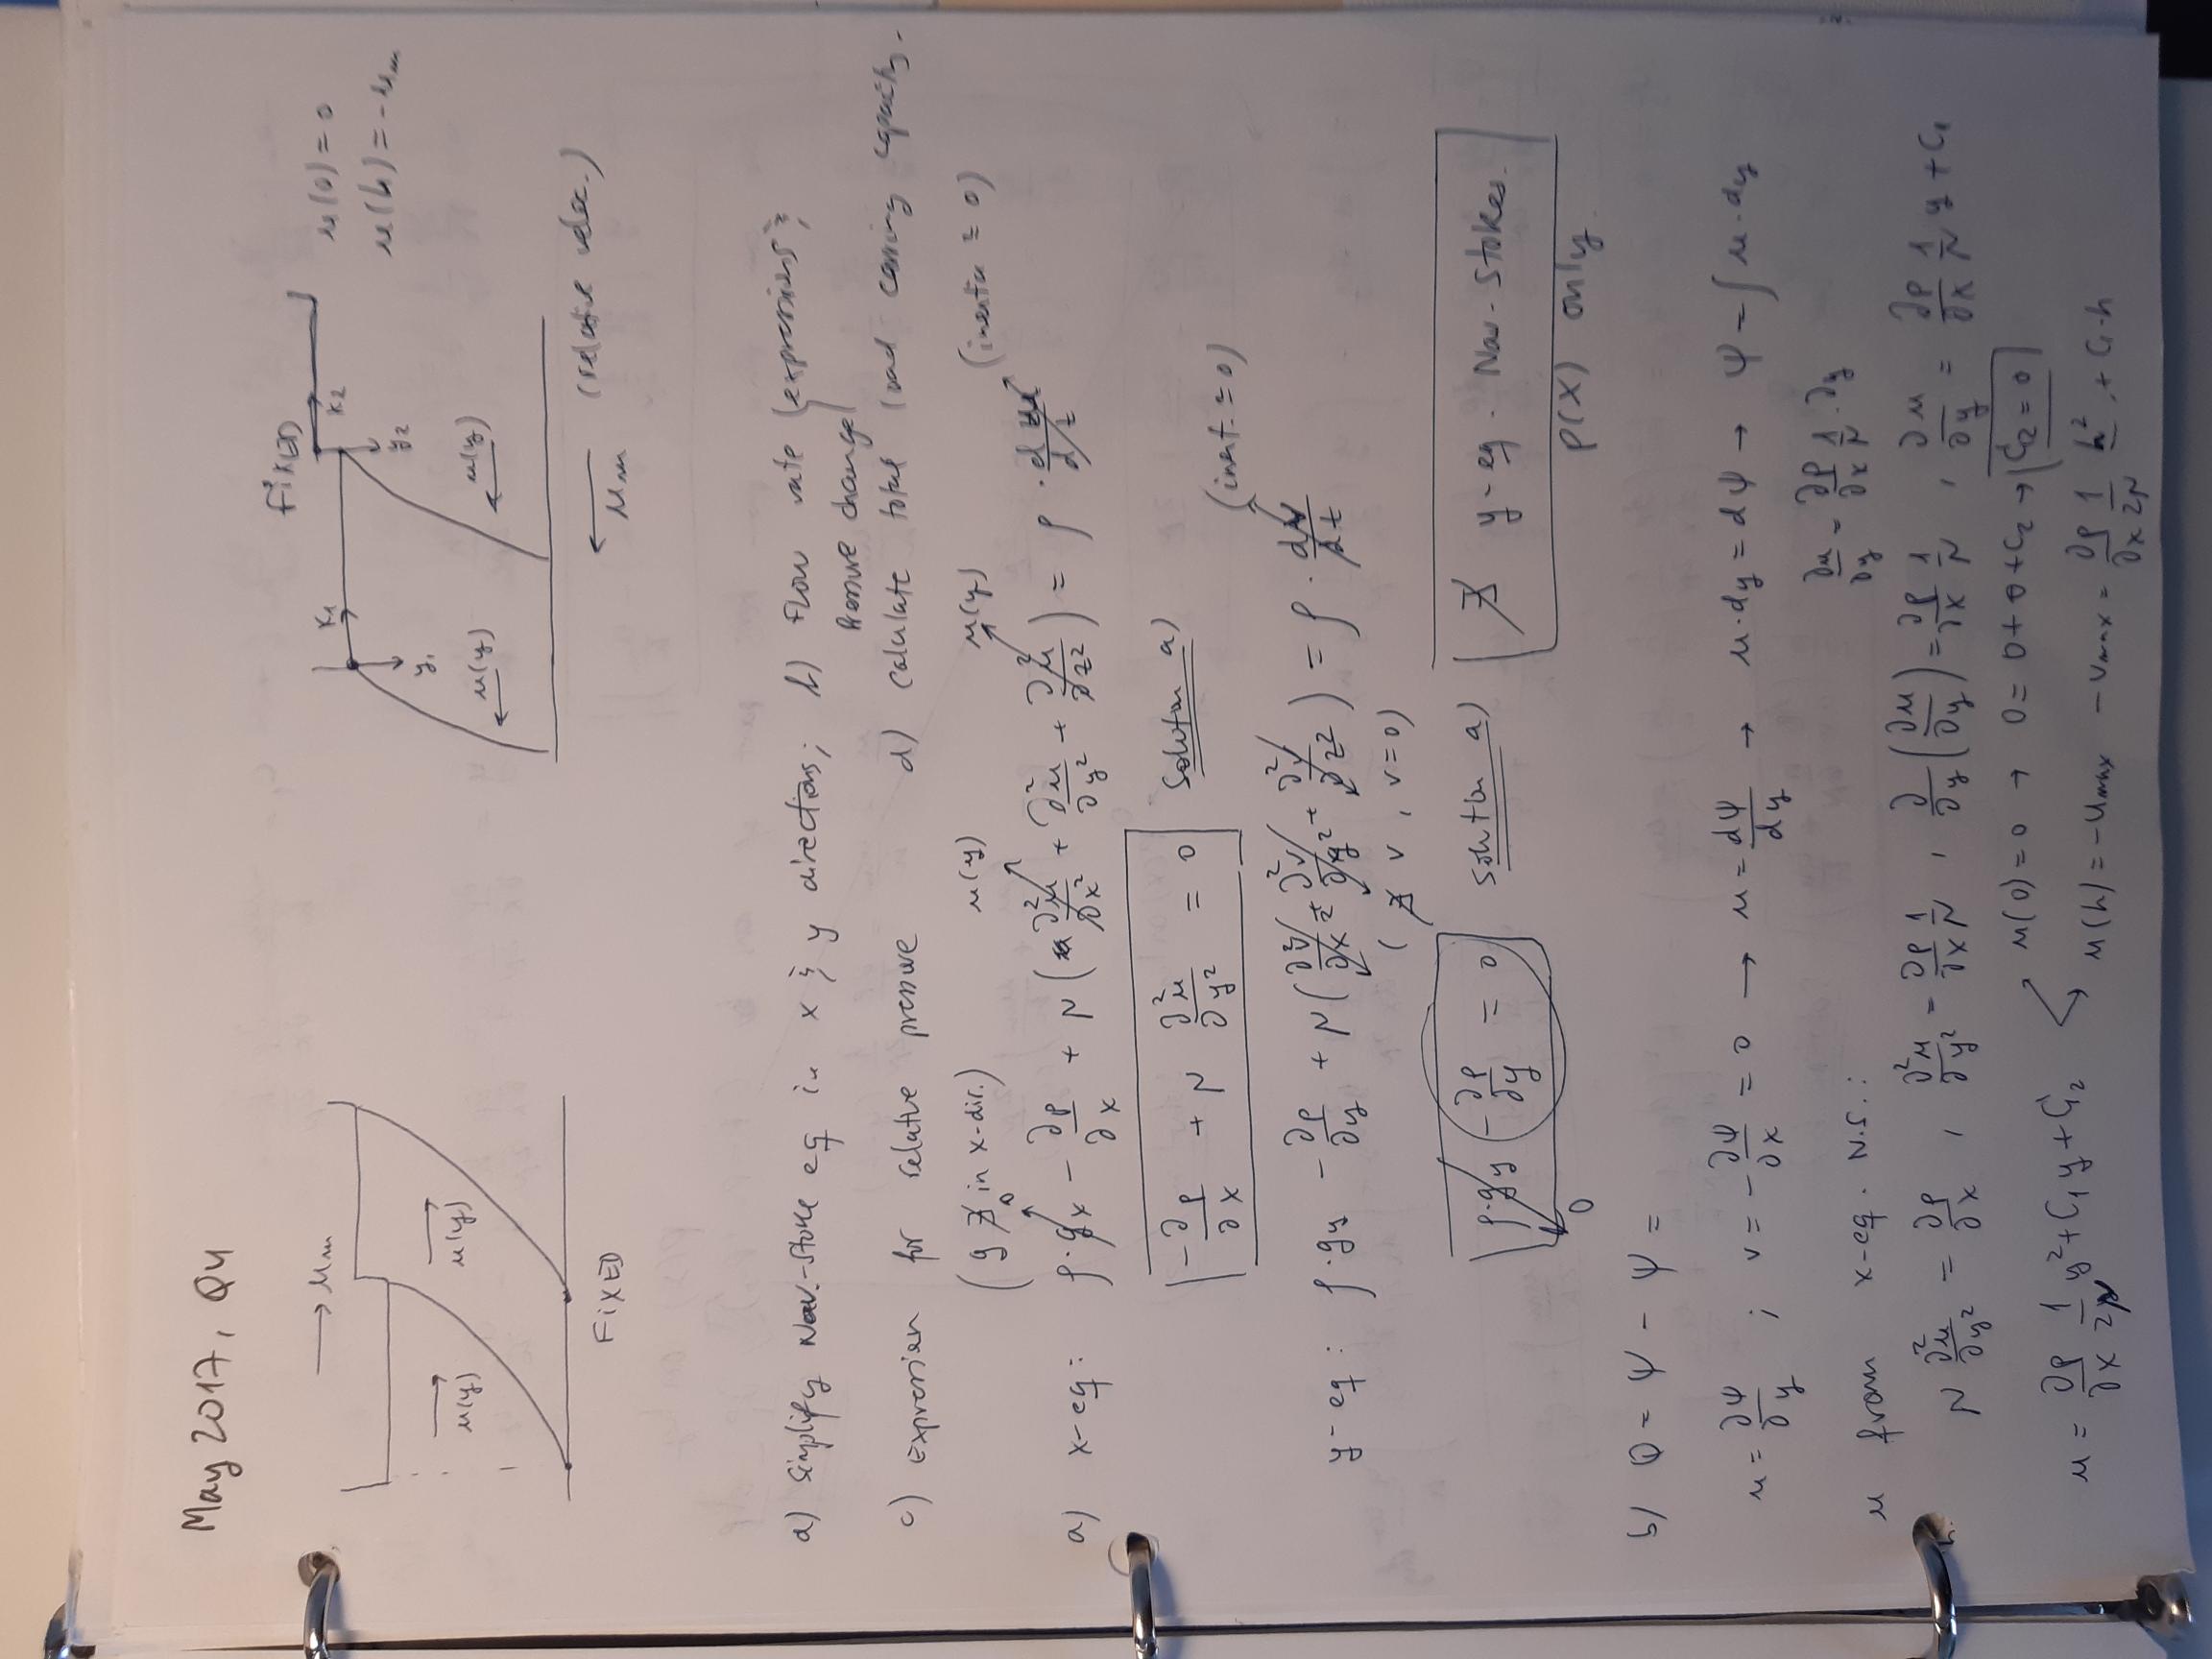 May 2017, Q4
→ um
u(y)
u(y)
FIXED
FIXED
x1
x2
y1
y2
u(y)
u(y)
u(0) = 0
u(h) = -um
um
(relative veloc.)
a) Simplify Nav.-Stoke eq in x & y directions; b) Flow rate (expressions &
Pressure change)
c) Expression for relative pressure d) Calculate total load carring capacity.
(g ∄ in x-dir.) u(y) u(y) (inertia ≈ 0)
0
a) x-eq: ρ·gx - ∂p/∂x + μ(∂²u/∂x² + ∂²u/∂y² + ∂²u/∂z²) = ρ · du/dt
-∂p/∂x + μ ∂²u/∂y² = 0 Solution a)
(inert. ≈ 0)
y-eq: ρ·gy - ∂p/∂y + μ(∂²v/∂x² + ∂²v/∂y² + ∂²v/∂z²) = ρ · dv/dt
(∄ v, v=0)
ρ·gy - ∂p/∂y = 0 Solution a) ∄ y-eq. Nav-Stokes.
0
p(x) only.
b) Q = ψ - ψ =
u = ∂ψ/∂y ; v = -∂ψ/∂x = 0 → u = dψ/dy → u·dy = dψ → ψ = ∫ u·dy
∂u/∂y = ∂p/∂x 1/μ · ∂y
u from x-eq. N.S.:
μ ∂²u/∂y² = ∂p/∂x , ∂²u/∂y² = ∂p/∂x 1/μ , ∂/∂y (∂u/∂y) = ∂p/∂x 1/μ , ∂u/∂y = ∂p/∂x 1/μ y + C1
u(0) = 0 → 0 = 0 + 0 + C2 → C2 = 0
u = ∂p/∂x 1/2μ y² + C1 y + C2
u(h) = -umax -umax = ∂p/∂x 1/2μ h² + C1·h